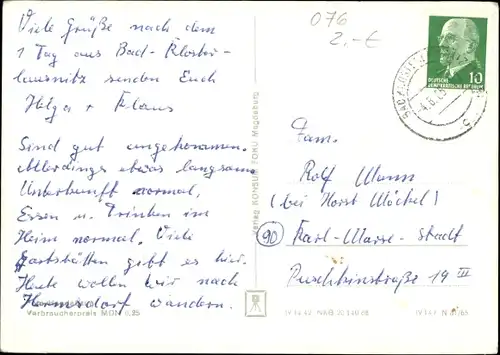 Viele Grüße nach dem
1 Tag aus Bad-Kloster-
lausnitz senden Euch
Helga + Klaus
Sind gut angekommen.
Allerdings etwas langsame
Unterkunft normal,
Essen u. Trinken im
Heim normal. Viele
Gaststätten gibt es hier.
Heute wollen wir nach
Hermsdorf wandern.
Verbraucherpreis MDN 0,25
Verlag KONSUM FORU Magdeburg
076
2,-€
10
DEUTSCHE
DEMOKRATISCHE REPUBLIK
Fam.
Rolf Mann
(bei Horst Möckel)
(90) Karl-Marx-Stadt
Puschkinstraße 19 III